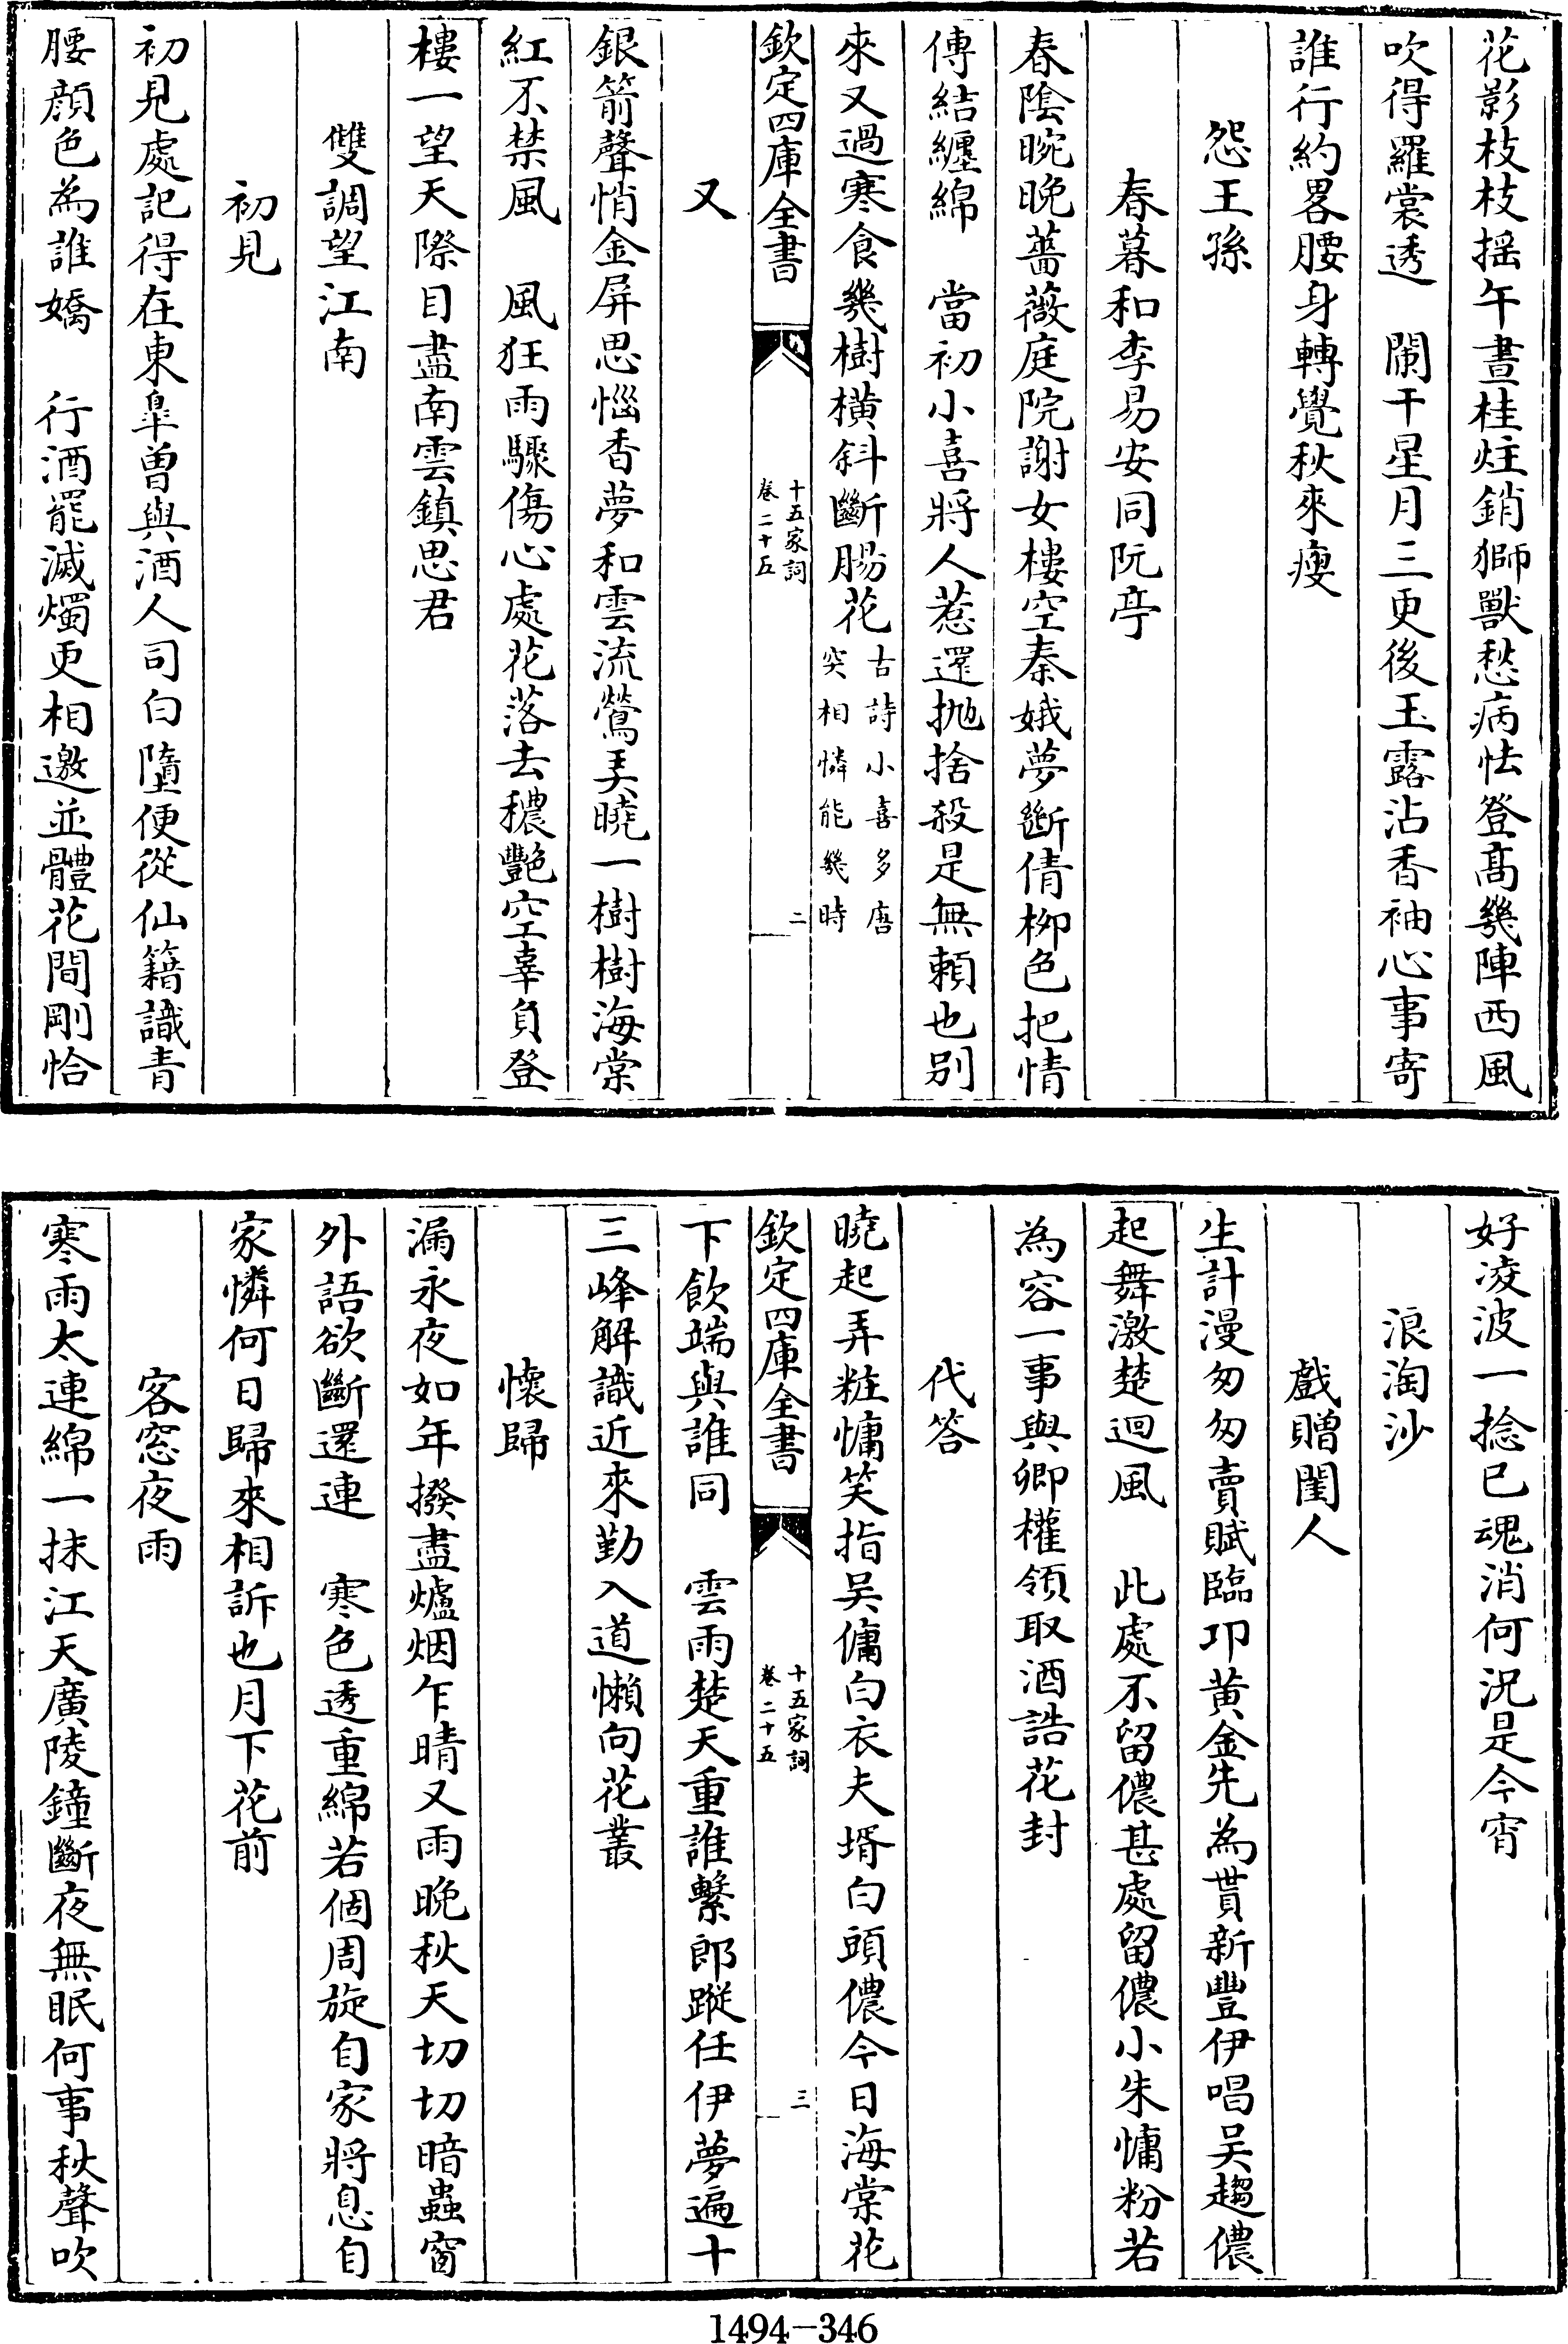 花影枝枝揺午晝桂炷銷獅獸愁病怯登髙幾陣西風
吹得羅裳透　闌干星月三更後玉露沾香袖心事寄
誰行約畧腰身轉覺秋來瘦
怨王孫
春暮和李易安同阮亭
春陰晼晚薔薇庭院謝女樓空秦娥夢斷倩柳色把情
傳結纏綿　當初小喜將人惹還抛捨殺是無賴也别
來又過寒食幾樹橫斜斷腸花古詩小喜多唐
突相憐能幾時
欽定四庫全書
十五家詞
卷二十五
二
又
銀箭聲悄金屏思惱香夢和雲流鶯弄曉一樹樹海棠
紅不禁風　風狂雨驟傷心處花落去穠艷空辜負登
樓一望天際目盡南雲鎮思君
雙調望江南
初見
初見處記得在東臯曽與酒人司白墮便從仙籍識青
腰顔色為誰嬌　行酒罷滅燭更相邀並體花間剛恰
好凌波一捻已魂消何況是今宵
浪淘沙
戲贈閨人
生計漫匆匆賣賦臨卭黄金先為貰新豐伊唱吴趨儂
起舞激楚迴風　此處不留儂甚處留儂小朱慵粉若
為容一事與卿權領取酒誥花封
代答
曉起弄粧慵笑指吴傭白衣夫壻白頭儂今日海棠花
欽定四庫全書
十五家詞
卷二十五
三
下飲端與誰同　雲雨楚天重誰繫郎蹤任伊夢遍十
三峰解識近來勤入道懶向花叢
懷歸
漏永夜如年撥盡爐烟乍晴又雨晚秋天切切暗蟲窗
外語欲斷還連　寒色透重綿若個周旋自家將息自
家憐何日歸來相訴也月下花前
客窓夜雨
寒雨太連綿一抹江天廣陵鐘斷夜無眠何事秋聲吹
1494-346